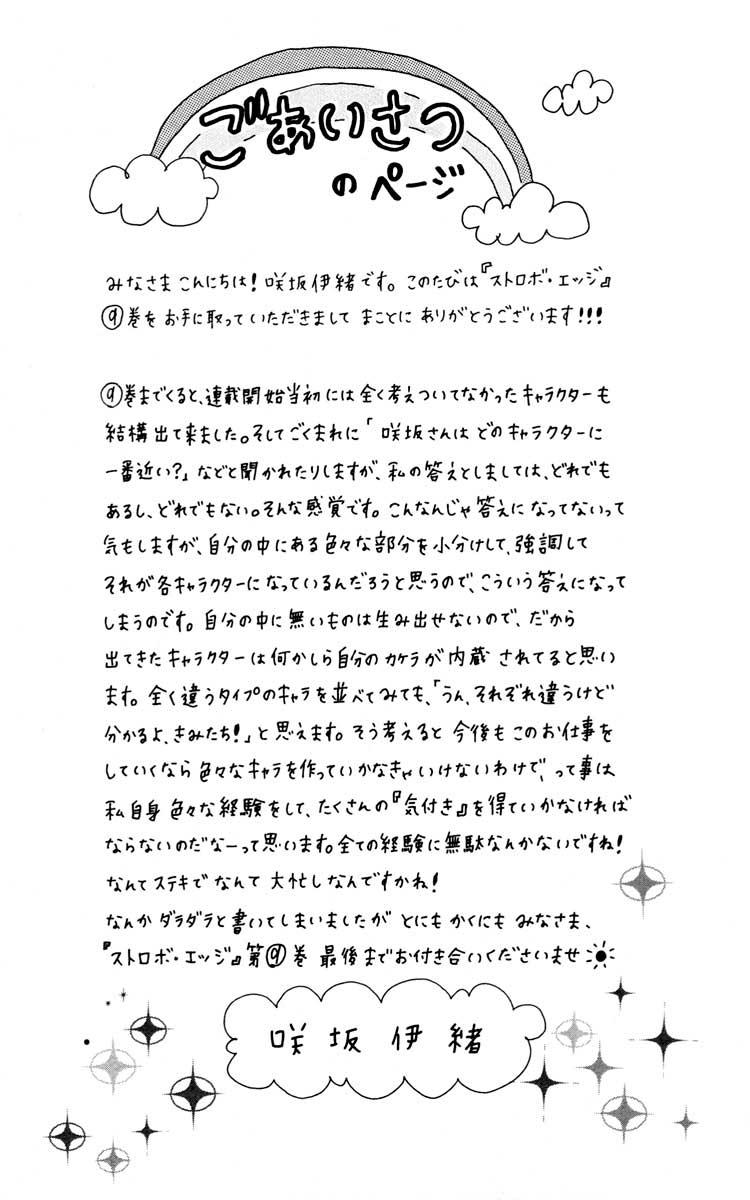 ごあいさつ
のページ
みなさまこんにちは!咲坂伊緒です。このたびは『ストロボ・エッジ』
⑨巻をお手に取っていただきまして まことに ありがとうございます!!!
⑨巻までくると、連載開始当初には全く考えついてなかったキャラクターも
結構出て来ました。そしてごくまれに「咲坂さんは どのキャラクターに
一番近い?」などと聞かれたりしますが、私の答えとしましては、どれでも
あるし、どれでもない。そんな感覚です。こんなんじゃ答えになってないって
気もしますが、自分の中にある色々な部分を小分けして、強調して
それが各キャラクターになっているんだろうと思うので、こういう答えになって
しまうのです。自分の中に無いものは生み出せないので、だから
出てきたキャラクターは何かしら自分のカケラが内蔵されてると思い
ます。全く違うタイプのキャラを並べてみても、「うん、それぞれ違うけど
分かるよ、きみたち!」と思えます。そう考えると 今後もこのお仕事を
していくなら色々なキャラを作っていかなきゃいけないわけで、って事は
私自身 色々な経験をして、たくさんの『気付き』を得ていかなければ
ならないのだなーって思います。全ての経験に無駄なんかないですね!
なんてステキで なんて 大忙しなんですかね!
なんかダラダラと書いてしまいましたが とにもかくにも みなさま、
『ストロボ・エッジ』第⑨巻 最後までお付き合いくださいませ
咲坂伊緒